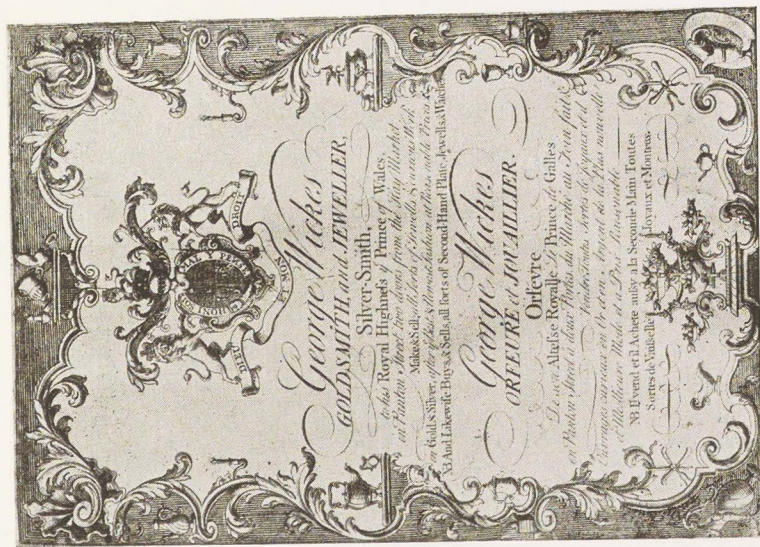 HONI SOIT QUI MAL Y PENSE
DIEU ET MON DROIT
George Wickes
GOLDSMITH, and JEWELLER,
Silver-Smith,
to his Royal Highness ye Prince of Wales,
in Panton Street two doors from the Hay Market
Makes & Sells all sorts of Jewells & curious Work
in Gold & Silver, after ye best & Newest fashion at Reasonable Prices
NB And Likewise Buys & Sells, all sorts of Second Hand Plate, Jewells, & Watches
George Wickes
ORFEURE et JOUAILLIER.
Orfevre
De son Altesse Royalle Le Prince de Galles
en Panton Street à deux Portes du Marché au Foin fait et
Vendre Toutes Sortes de Joyaux et d
Ouvrages curieux en Or et en Argent de la Plus nouvelle
et Meilleure Mode et a Prix Raisonable
NB Il vend et il Achete aussy a la Seconde Main Toutes
Sortes de Vaisselle, Joyaux et Montres.